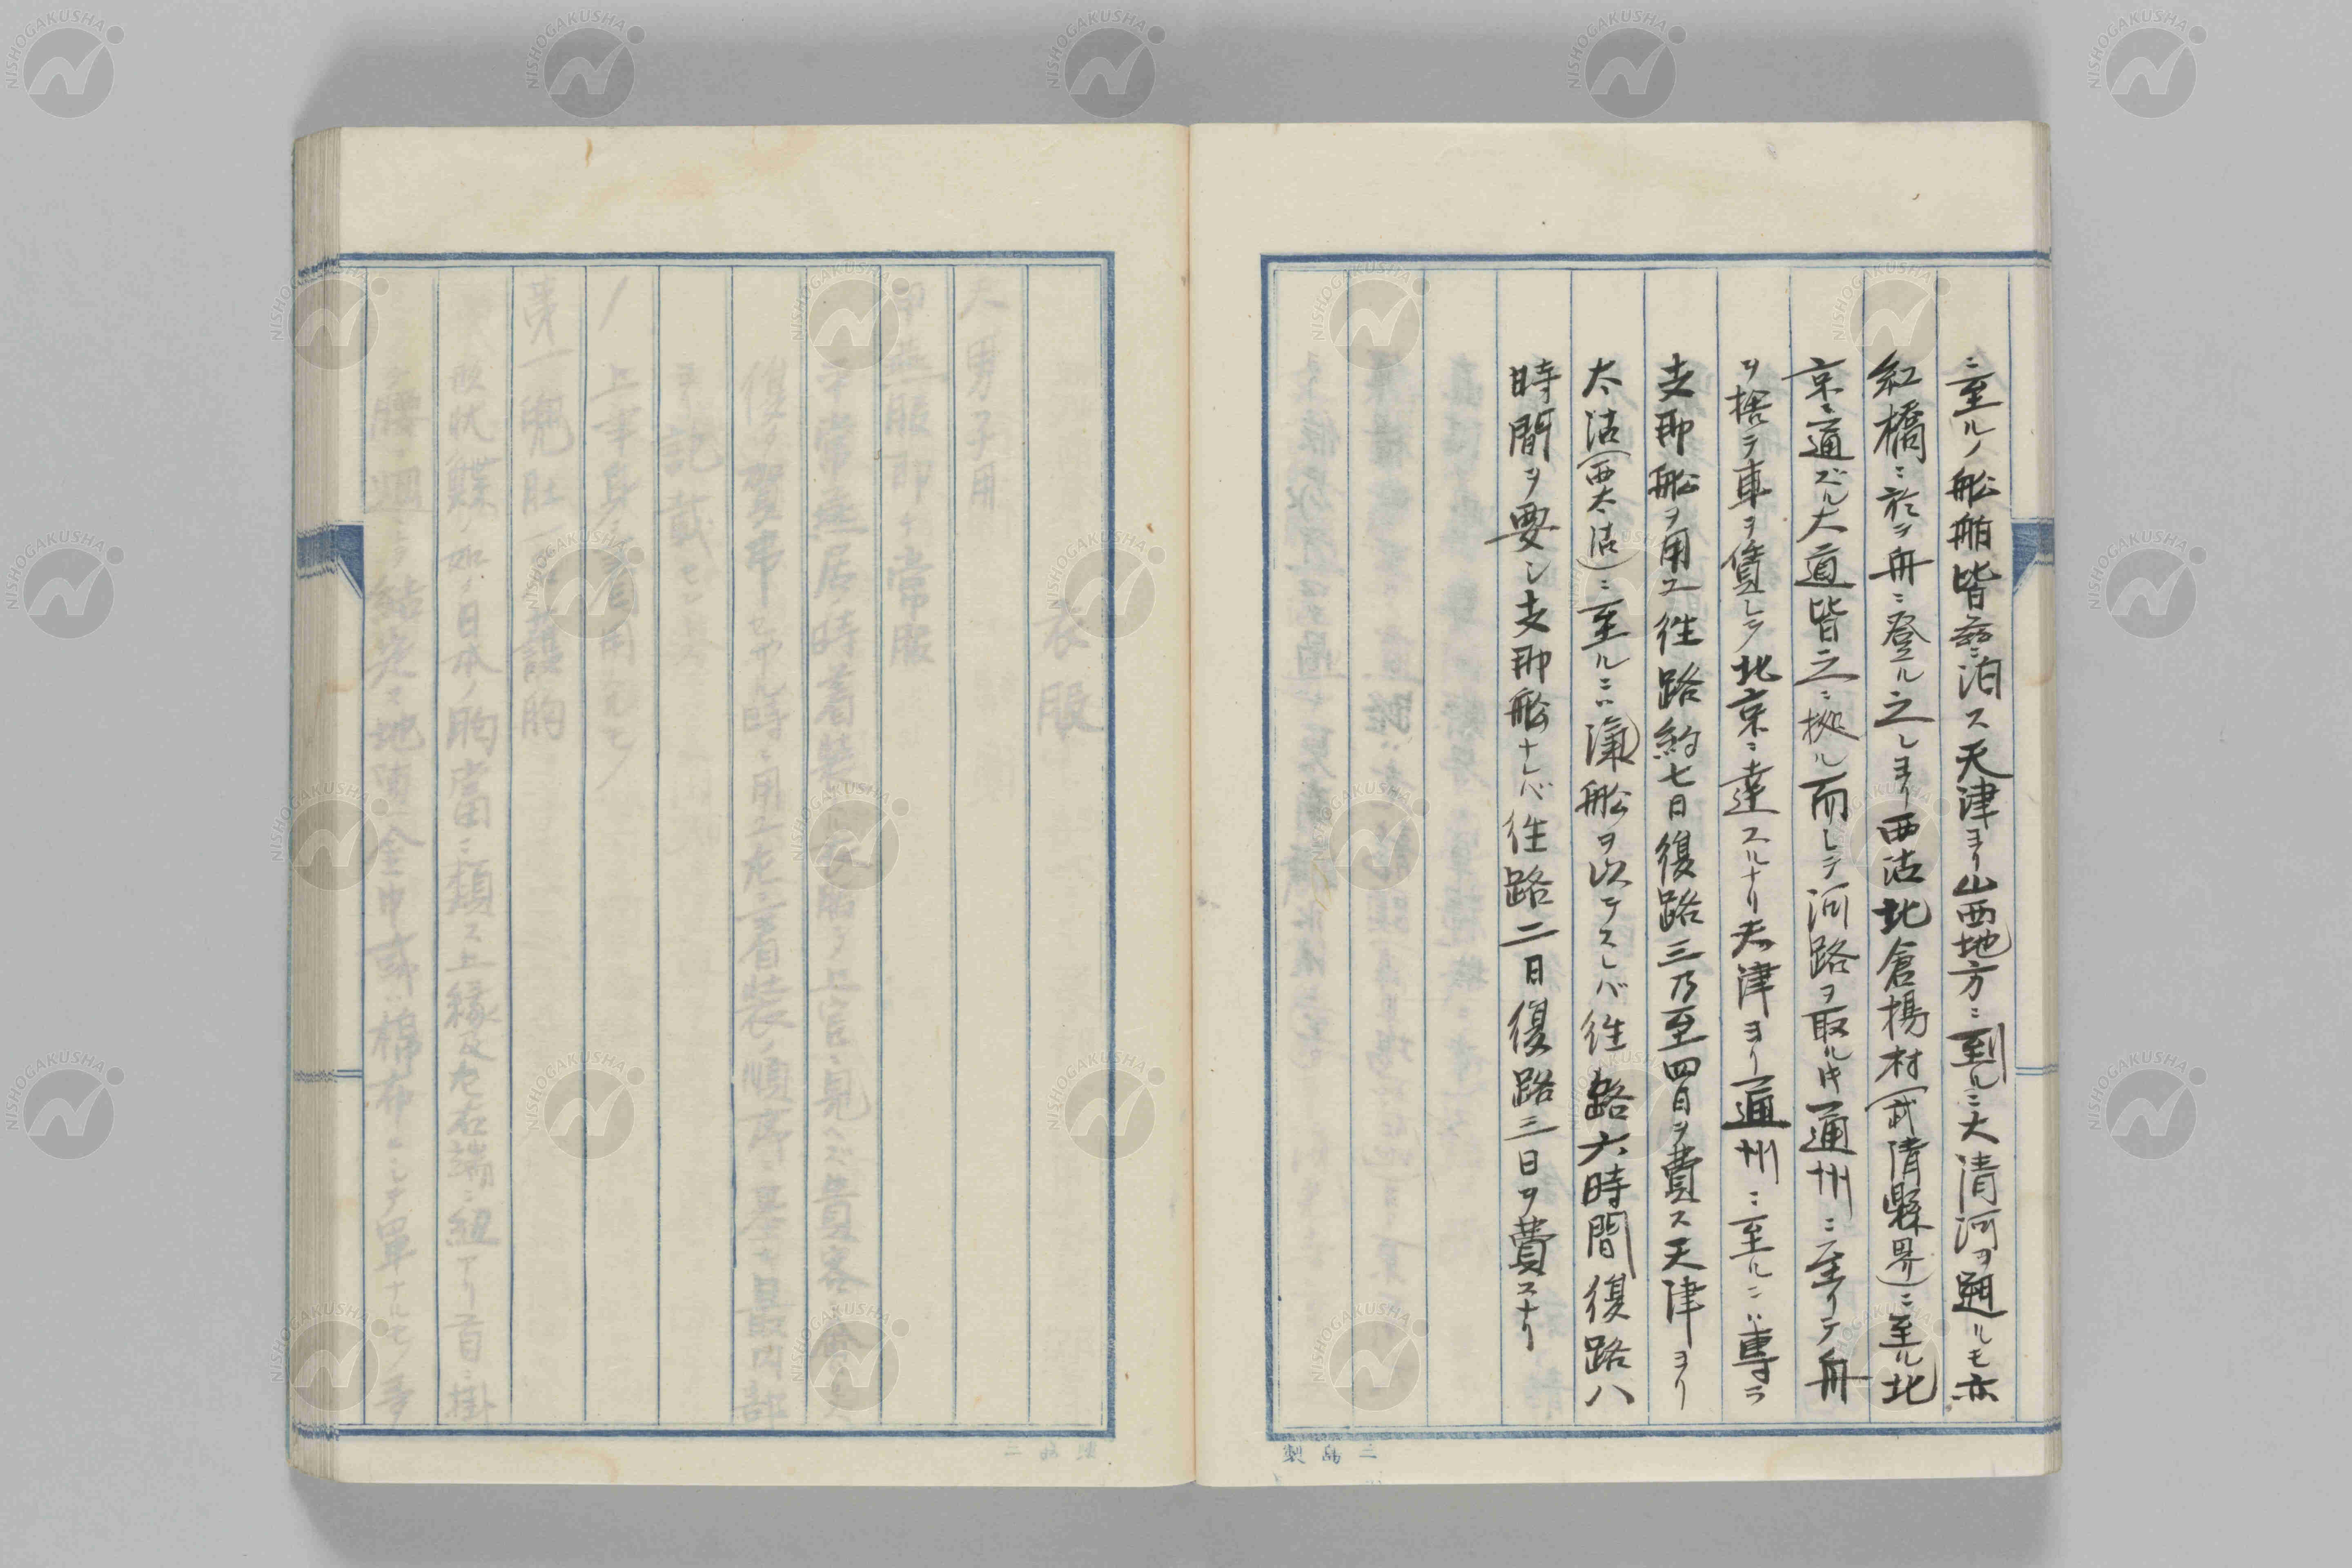 ニ至ルノ船舶皆玆ニ泊ス天津ヨリ山西地方ニ到ルニ大清河ヲ遡ルモ亦
紅橋ニ於テ舟ニ登ル之レヨリ西沽北倉楊村(武清縣界)ニ至ル北
京ニ通ズル大道皆之ニ拠ル而レテ河路ヲ取ル時通州ニ至リテ舟
ヲ捨テ車ヲ賃シテ北京ニ達スルナリ天津ヨリ通州ニ至ルニハ専ラ
支那船ヲ用エ往路約七日復路三乃至四日ヲ費ス天津ヨリ
太沽(西太沽)ニ至ルニハ滊船ヲ以テスレバ往路六時間復路八
時間ヲ要シ支那船ナレバ往路二日復路三日ヲ費スナリ
三島製
衣服
大男子用
甲燕服即チ常服
平常燕居ノ時着装
復タ賀弔
記載セン
上半身ニ着用スルモノ
第一兜肚一名護胸
其欵状蝶ノ如ク日本ノ胸當ニ類ス上縁及左右端ニ紐アリ首ニ掛
腰ニ廻ハシテ結定ス地質金巾或ハ棉布ニシテ單ナルモノ多
NISHOGAKUSHA